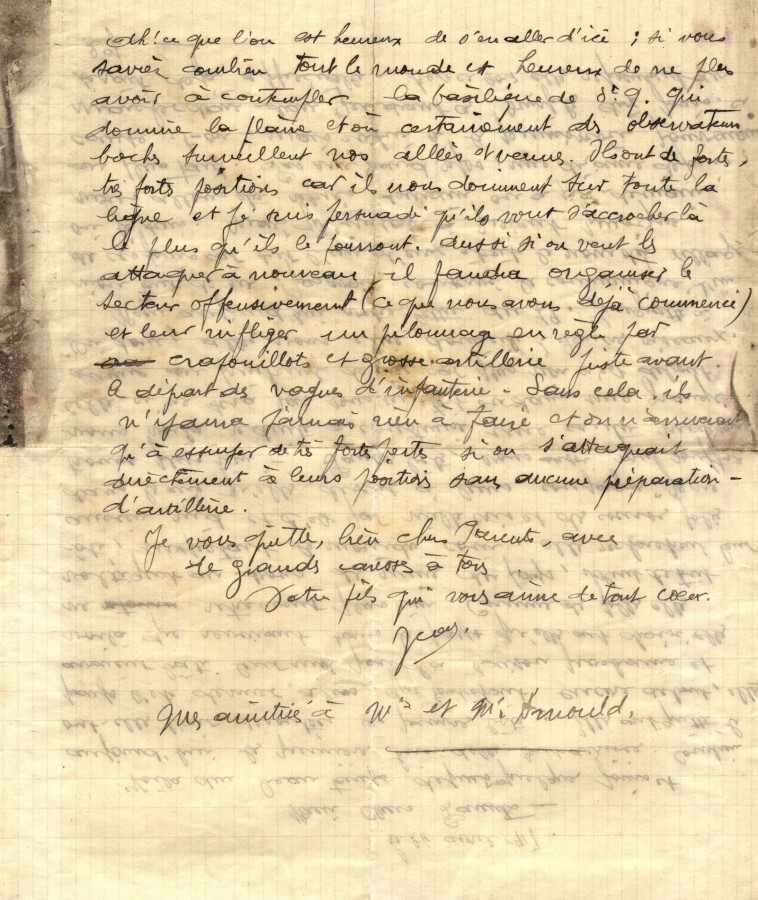 Ah! ce que l'on est heureux de s'en aller d'ici ; si vous
saviez combien tout le monde est heureux de ne plus
avoir à contempler la basilique de St Q. qui
domine la plaine et où certainement des observateurs
boches surveillent nos allées et venues. Ils ont de fortes,
très fortes positions car ils nous dominent sur toute la
ligne et je suis persuadé qu'ils vont s'accrocher là
le plus qu'ils le pourront. Aussi si on veut les
attaquer à nouveau il faudra organiser le
secteur offensivement (ce que nous avons déjà commencé)
et leur infliger un pilonnage en règle par
crapouillots et grosse artillerie juste avant
le départ des vagues d'infanterie - Sans cela ils
n'y aura jamais rien à faire et on n'arriverait
qu'à essuyer de très fortes pertes si on s'attaquait
directement à leurs positions sans aucune préparation -
d'artillerie.
Je vous quitte, bien chers Parents, avec
de grandes caresses à tous
Votre fils qui vous aime de tout cœur.
Jean.
Mes amitiés à Me et Mr Arnould.